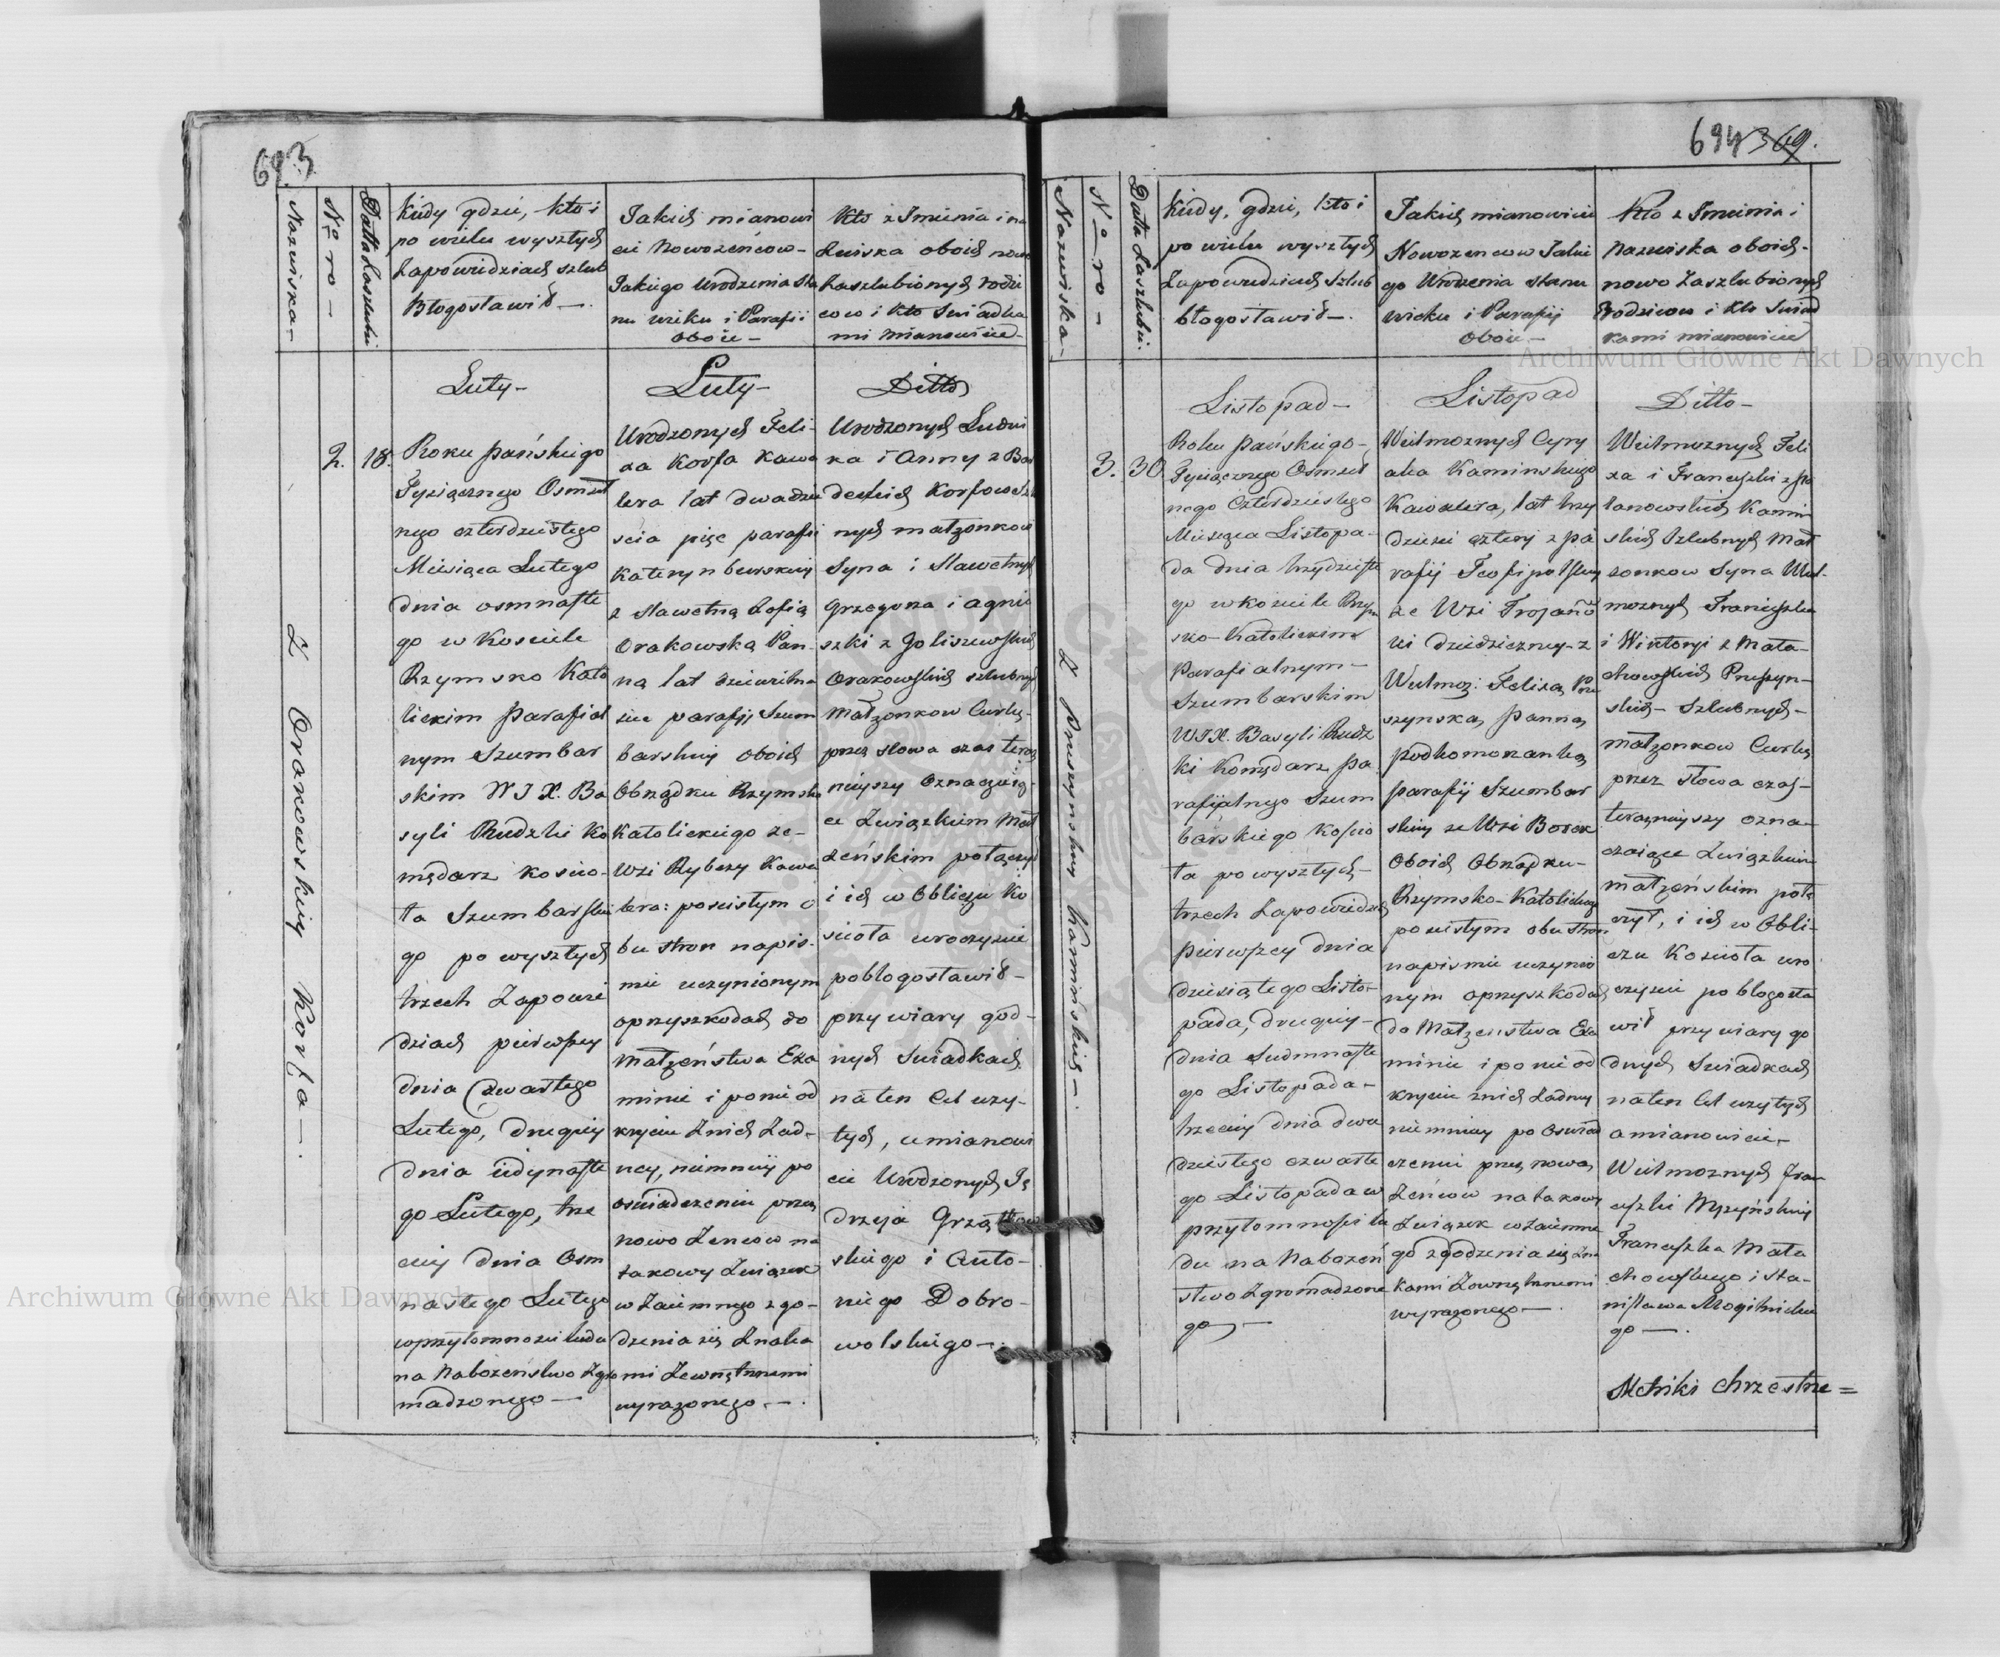 693
Nazwiska
Nro
Datta Zaszłubi
Kiedy gdzie, kto i
po wielu wyszłych
Zapowiedziach szlub
Błogosławił
Jakich mianowi
cie Nowożeńcow
Jakiego Urodzenia sta
nu wieku i Parafii
oboie
Kto z Imienia i na
zwiska oboich nowo
Zaszlubionych rodzi
cow i kto swiadka
mi mianowicie
Z Orakowskiey Korfa
2.
18.
Luty
Roku pańskiego
Tysiącznego Osmset
nego czterdziestego
Miesiąca Lutego
dnia osmnaste
go w Kosciele
Rzymsko Kato
lickim parafial
nym Szumbar
skim WJX. Ba
syli Rudzki Ko
mędarz koscio
ła Szumbarskie
go po wyszłych
trzech Zapowie
dziach pierwszey
dnia Czwartego
Lutego, drugiey
dnia iedynaste
go Lutego, trze
ciey dnia Osm
nastego Lutego
w przytomnosci ludu
na Nabożeństwo Zgro
madzonego
Luty
Urodzonych Feli
xa Korfa Kawa
lera lat dwadzie
scia pięc parafii
Katerynburskiey
z Sławetną Zofią
Orakowską Pan
ną lat dziewietna
scie parafij Szum
barskiey oboich
Obrządku Rzymsko
Katolickiego ze
Wsi Rybczy Kawa
lera: poscistym o
bu stron napis
mie uczynionym
oprzyszkodach do
Małżeństwa Exa
minie i po nie od
kryciu Żnich Żad
ney, niemniey po
oswiadczeniu przez
nowo Żencow na
takowy Związek
w Zaiemnego zgo
dzenia się Znaka
mi Zewnętrznemi
wyrażonego
Ditto
Urodzonych Ludwi
ka i Anny z Bar
deckich Korfow Szlu
nych małżonkow
Syna i Sławetnych
Grzegorza i Agnie
szki z Goliszewskich
Orakowskich szlubnych
Małżonkow Curkę
przez słowa czas teraz
nieyszy Oznaczaią
ce Związkiem Mał
żeńskim połączył
i ich w Obliczu Ko
scioła uroczyscie
pobłogosławił
przy wiary god
nych Swiadkach
na ten Cel uzy
tych, a mianowi
cie Urodzonych Ję
drzeja
skiego i Anto
niego Dobro
wolskiego
694 369.
Nazwiska
Nro
Datta Zaszlubi.
Kiedy, gdzie, kto i
po wielu wyszłych
Zapowiedziach Szlub
błogosławił
Jakich mianowicie
Nowozencow Jakie
go Urodzenia stanu
wieku i Parafij
oboie
Kto z Imienia i
Nazwiska oboich
nowo Zaszlubionych
Rodzicow i Kto Swiad
kami mianowicie
Z Pruszynskiey Kaminskich
3.
30
Listopad
Roku pańskiego
Tysiącznego Osmset
nego Czterdziestego
Miesiąca Listopa
da dnia trzydzieste
go w kosciele Rzym
sko Katolickim
Parafialnym
Szumbarskim
WJX. Basyli Rudz
ki Komędarz Pa
rafijalnego Szum
barskiego Koscio
ła po wyszłych
trzech Zapowiedziach
pierwszey dnia
dziesiątego Listo
pada, drugiey
dnia Siedmnaste
go Listopada
trzeciey dnia dwu
dziestego czwarte
go Listopada w
przytomnosci lu
du na Nabożeń
stwo Zgromadzone
go
Listopad
Wielmoznych Cyry
aka Kaminskiego
Kawalera, lat trzy
dziesci cztery z pa
rafij Teofipolskiey
ze Wsi Trojano
ki dziedziczney z
Wielmoz: Felixą Pru
szynską, panną
podkomorzanką
parafij Szumbar
skiey ze Wsi Borek
Oboich Obrządku
Rzymsko-Katolickiego
po scistym obu stron
napismie uczynio
nym oprzyszkodach
do Małżeństwa Exa
minie i po nie od
kryciu znich Żadney
niemniey po oswiad
czeniu przez nowo
Żeńcow na takowy
Związek wzaiemne
go zgodzenia się Zna
kami Zewnętrznemi
wyrażonego
Ditto
Wielmoznych Feli
xa i Franciszki z Po
lanowskich Kamin
skich Szlubnych Mał
zonkow Syna Wiel
moznych Franciszka
i Wiktoryi z Mała
chowskich Pruszyn
skich Szlubnych
małżonkow Curkę
przez słowa czas
teraznieyszy ozna
czaiące Związkiem
małżeńskim połą
czył, i ich w Obli
czu Kościoła uro
czyscie pobłogosła
wił przy wiary go
dnych Swiadkach
na ten Cel uzytych
a mianowicie
Wielmoznych Fran
ciszka Małа
chowskiego i Sta
nisława Mogilnickie
go
Metriki chrzestne =
Archiwum Główne Akt Dawnych
Archiwum Główne Akt Dawnych